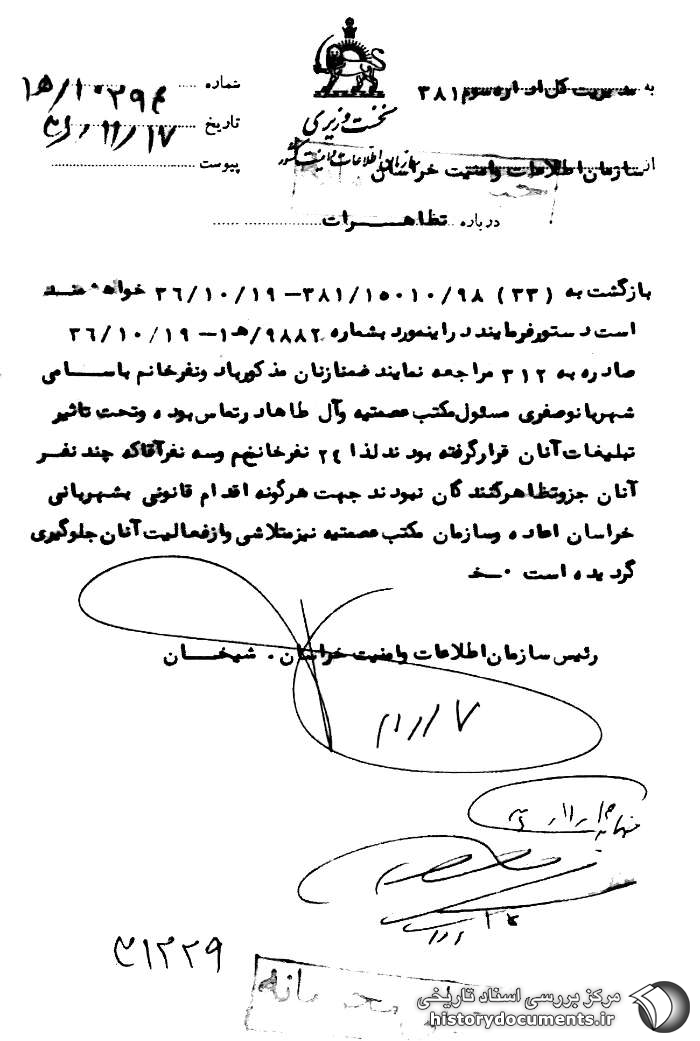 به مدیریت کل اداره سوم ۳۸۱
شماره ۱۰۲۹۴/ ۱ه
نخست وزیری
تاریخ ۳۶/۱۱/۱۷
سازمان اطلاعات و امنیت کشور
پیوست
از سازمان اطلاعات وامنیت خراسان
درباره تظاهـــرات
بازگشت به (۳۳) ۳۸۱/۱۵۰۱۰/۹۸–۳۶/۱۰/۱۹ خواهشمنـد
است دستورفرمایند دراینمورد بشماره ۹۸۸۲/ه۱–۳۶/۱۰/۱۹
صادره به ۳۱۲ مراجعه نمایند ضمنازنان مذکورباد ونفرخانم باسـامی
شهربانوصفری مسئول مکتب عصمتیه وآل طاها درتماس بوده وتحت تاثیر
تبلیغات آنان قرارگرفته بودند لذا ۲٤ نفرخانم وسه نفرآقاکه چند نفـر
آنان جزوتظاهرکنندگان نبودند جهت هرگونه اقدام قانونی بشهربانی
خراسان اعاده وسازمان مکتب عصمتیه نیزمتلاشی وازفعالیت آنان جلوگیری
گردیده است ۰خـ
رئیس سازمان اطلاعات وامنیت خراسان . شیخـان
۳۱۲۲۹
مرکز بررسی اسناد تاریخی
historydocuments.ir